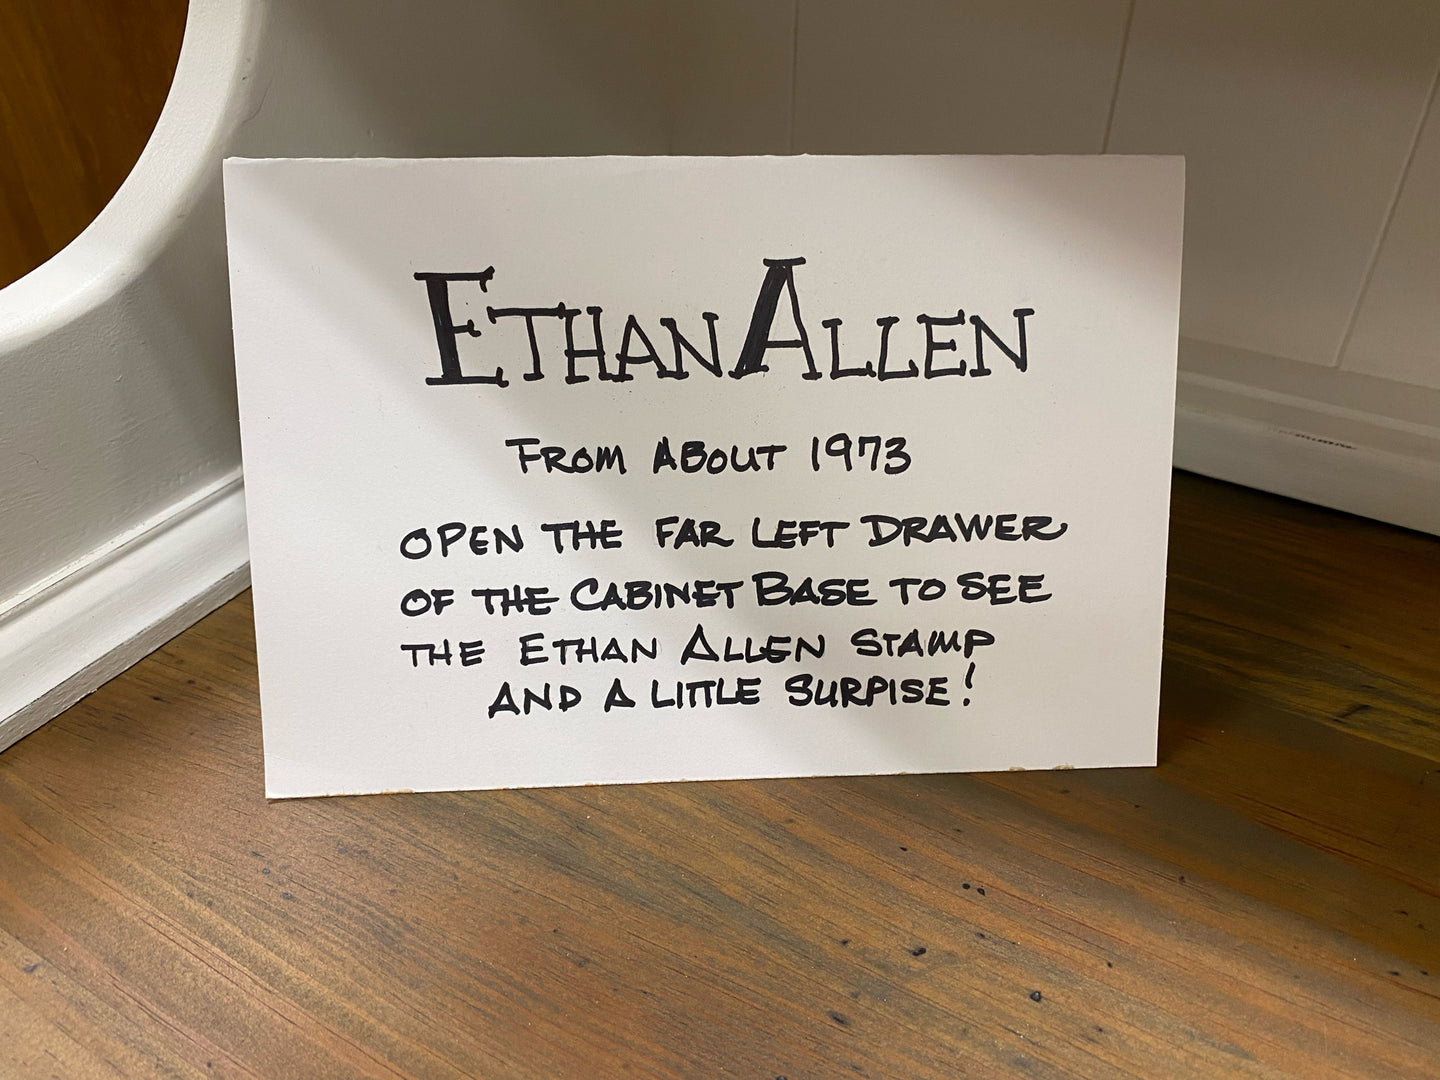 ETHAN ALLEN
FROM ABOUT 1973
OPEN THE FAR LEFT DRAWER
OF THE CABINET BASE TO SEE
THE ETHAN ALLEN STAMP
AND A LITTLE SURPISE!